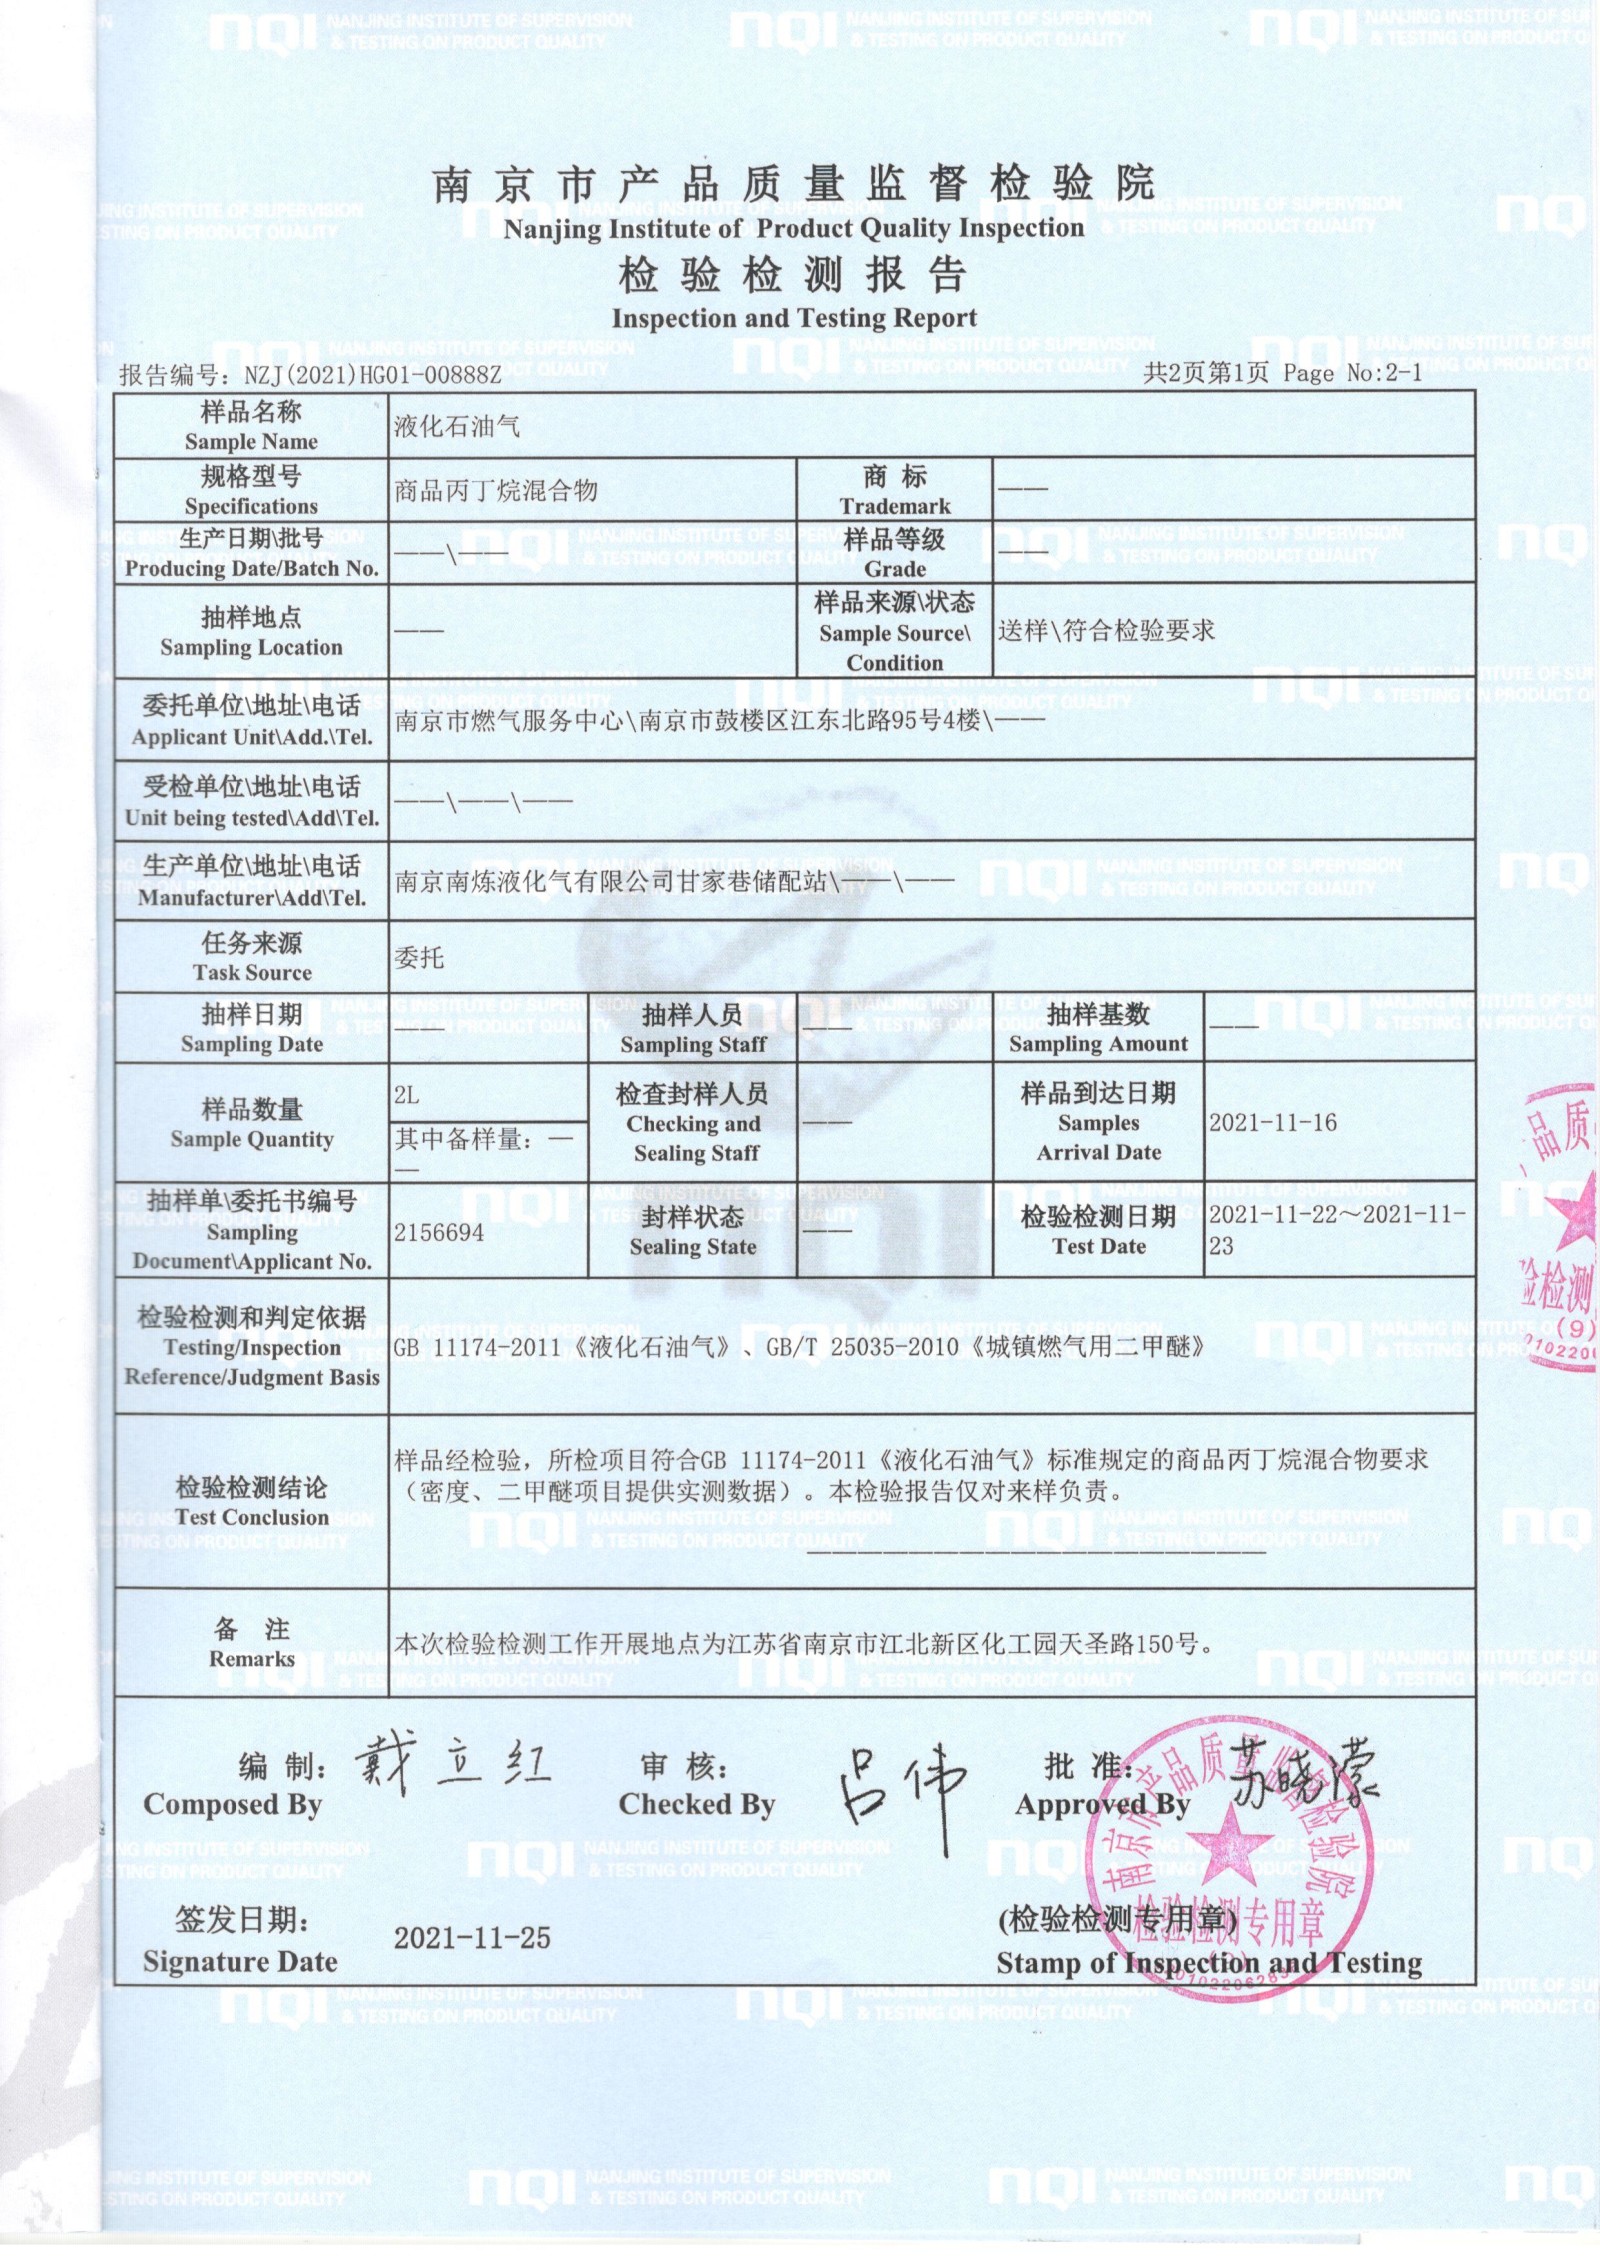 南京市产品质量监督检验院
Nanjing Institute of Product Quality Inspection
检验检测报告
Inspection and Testing Report
报告编号：NZJ(2021)HG01-00888Z 共2页第1页 Page No:2-1
样品名称
Sample Name
液化石油气
规格型号
Specifications
商品丙丁烷混合物
商 标
Trademark
——
生产日期\批号
Producing Date/Batch No.
——\——
样品等级
Grade
——
抽样地点
Sampling Location
——
样品来源\状态
Sample Source\
Condition
送样\符合检验要求
委托单位\地址\电话
Applicant Unit\Add.\Tel.
南京市燃气服务中心\南京市鼓楼区江东北路95号4楼\——
受检单位\地址\电话
Unit being tested\Add\Tel.
——\——\——
生产单位\地址\电话
Manufacturer\Add\Tel.
南京南炼液化气有限公司甘家巷储配站\——\——
任务来源
Task Source
委托
抽样日期
Sampling Date
——
抽样人员
Sampling Staff
——
抽样基数
Sampling Amount
——
样品数量
Sample Quantity
2L
其中备样量：—
—
检查封样人员
Checking and
Sealing Staff
——
样品到达日期
Samples
Arrival Date
2021-11-16
抽样单\委托书编号
Sampling
Document\Applicant No.
2156694
封样状态
Sealing State
——
检验检测日期
Test Date
2021-11-22～2021-11-
23
检验检测和判定依据
Testing/Inspection
Reference/Judgment Basis
GB 11174-2011《液化石油气》、GB/T 25035-2010《城镇燃气用二甲醚》
检验检测结论
Test Conclusion
样品经检验，所检项目符合GB 11174-2011《液化石油气》标准规定的商品丙丁烷混合物要求
（密度、二甲醚项目提供实测数据）。本检验报告仅对来样负责。
——————————————————
备 注
Remarks
本次检验检测工作开展地点为江苏省南京市江北新区化工园天圣路150号。
编 制：
Composed By
戴立红
审 核：
Checked By
吕伟
批 准：
Approved By
苏晓濛
签发日期：
Signature Date
2021-11-25
(检验检测专用章)
Stamp of Inspection and Testing
南京市产品质量监督检验院
检验检测专用章
品质
检测
(9)
nqi NANJING INSTITUTE OF SUPERVISION
& TESTING ON PRODUCT QUALITY